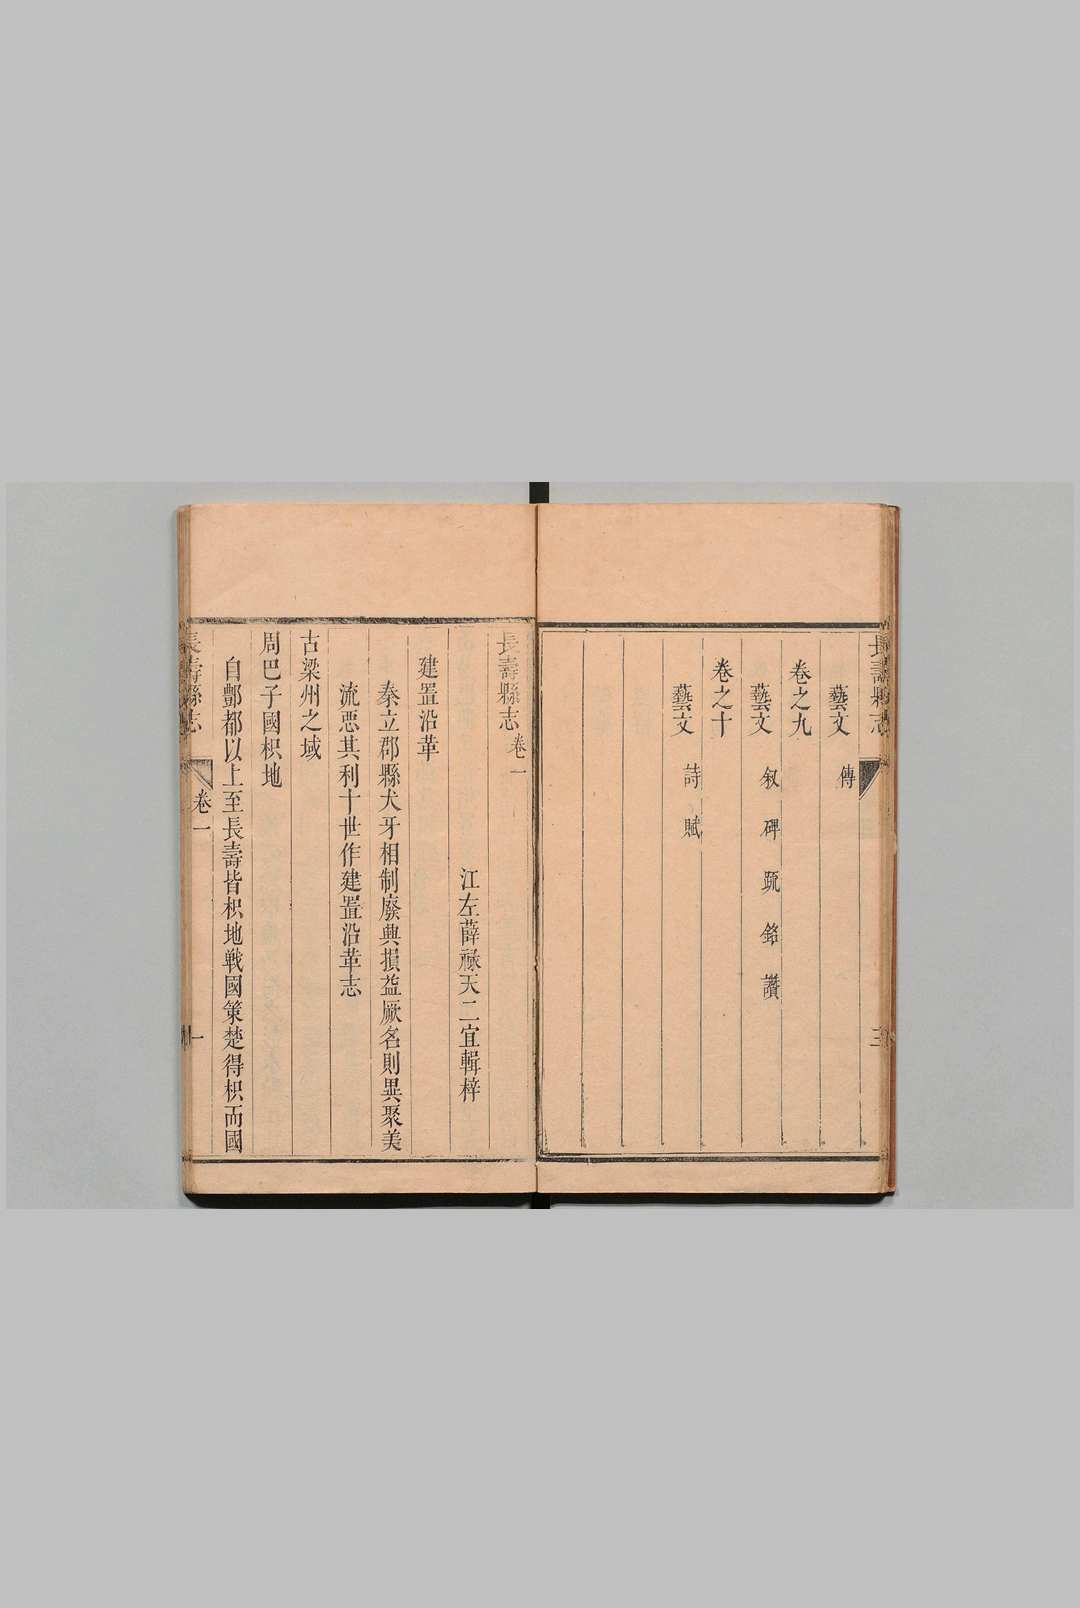 長壽縣志
三
藝文 傳
卷之九
藝文 叙 碑 䟽 銘 讚
卷之十
藝文 詩 賦
長壽縣志 卷一
江左薛祿天二宜輯梓
建置沿革
秦立郡縣犬牙相制廢興損益厥名則異聚美
流惡其利十世作建置沿革志
古梁州之域
周巴子國枳地
自酆都以上至長壽皆枳地戰國策楚得枳而國
長壽縣志 卷一 一